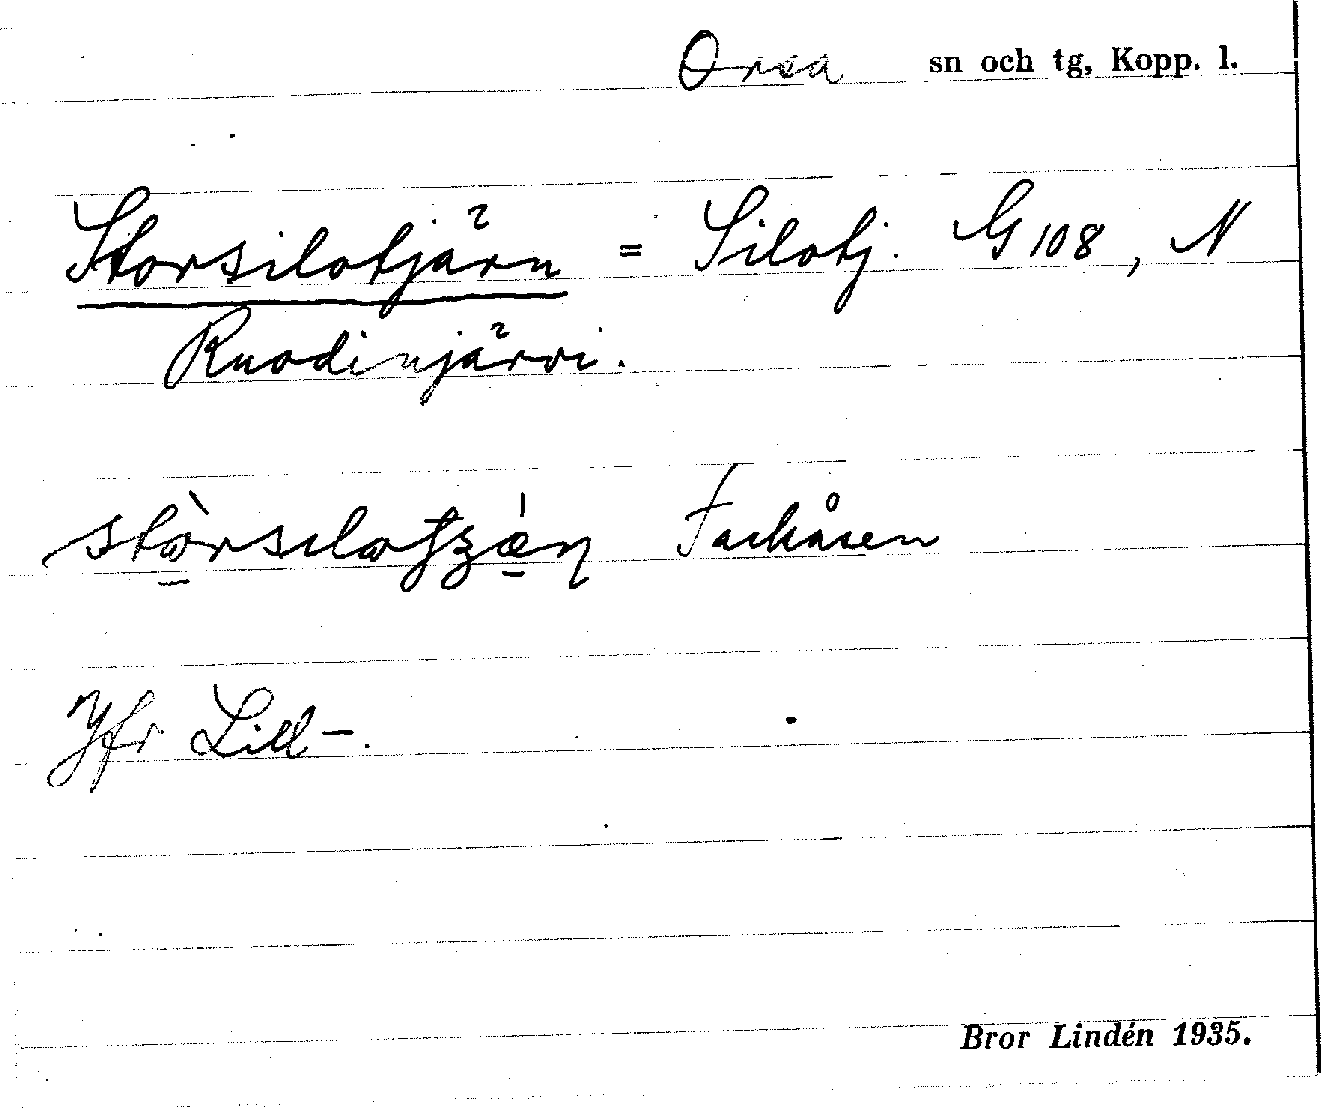 Orsa sn och tg, Kopp. l.
Storsilotjärn = Silotj. G 108, N
Ruodinjärvi.
Fackåsen
Jfr Lill-.
Bror Lindén 1935.